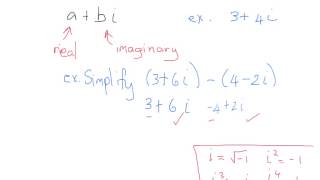 a + b i ex. 3 + 4 i
real imaginary
ex. Simplify (3+6i) - (4-2i)
3 + 6 i -4+2i
i = √-1 i² = -1
i³ i⁴